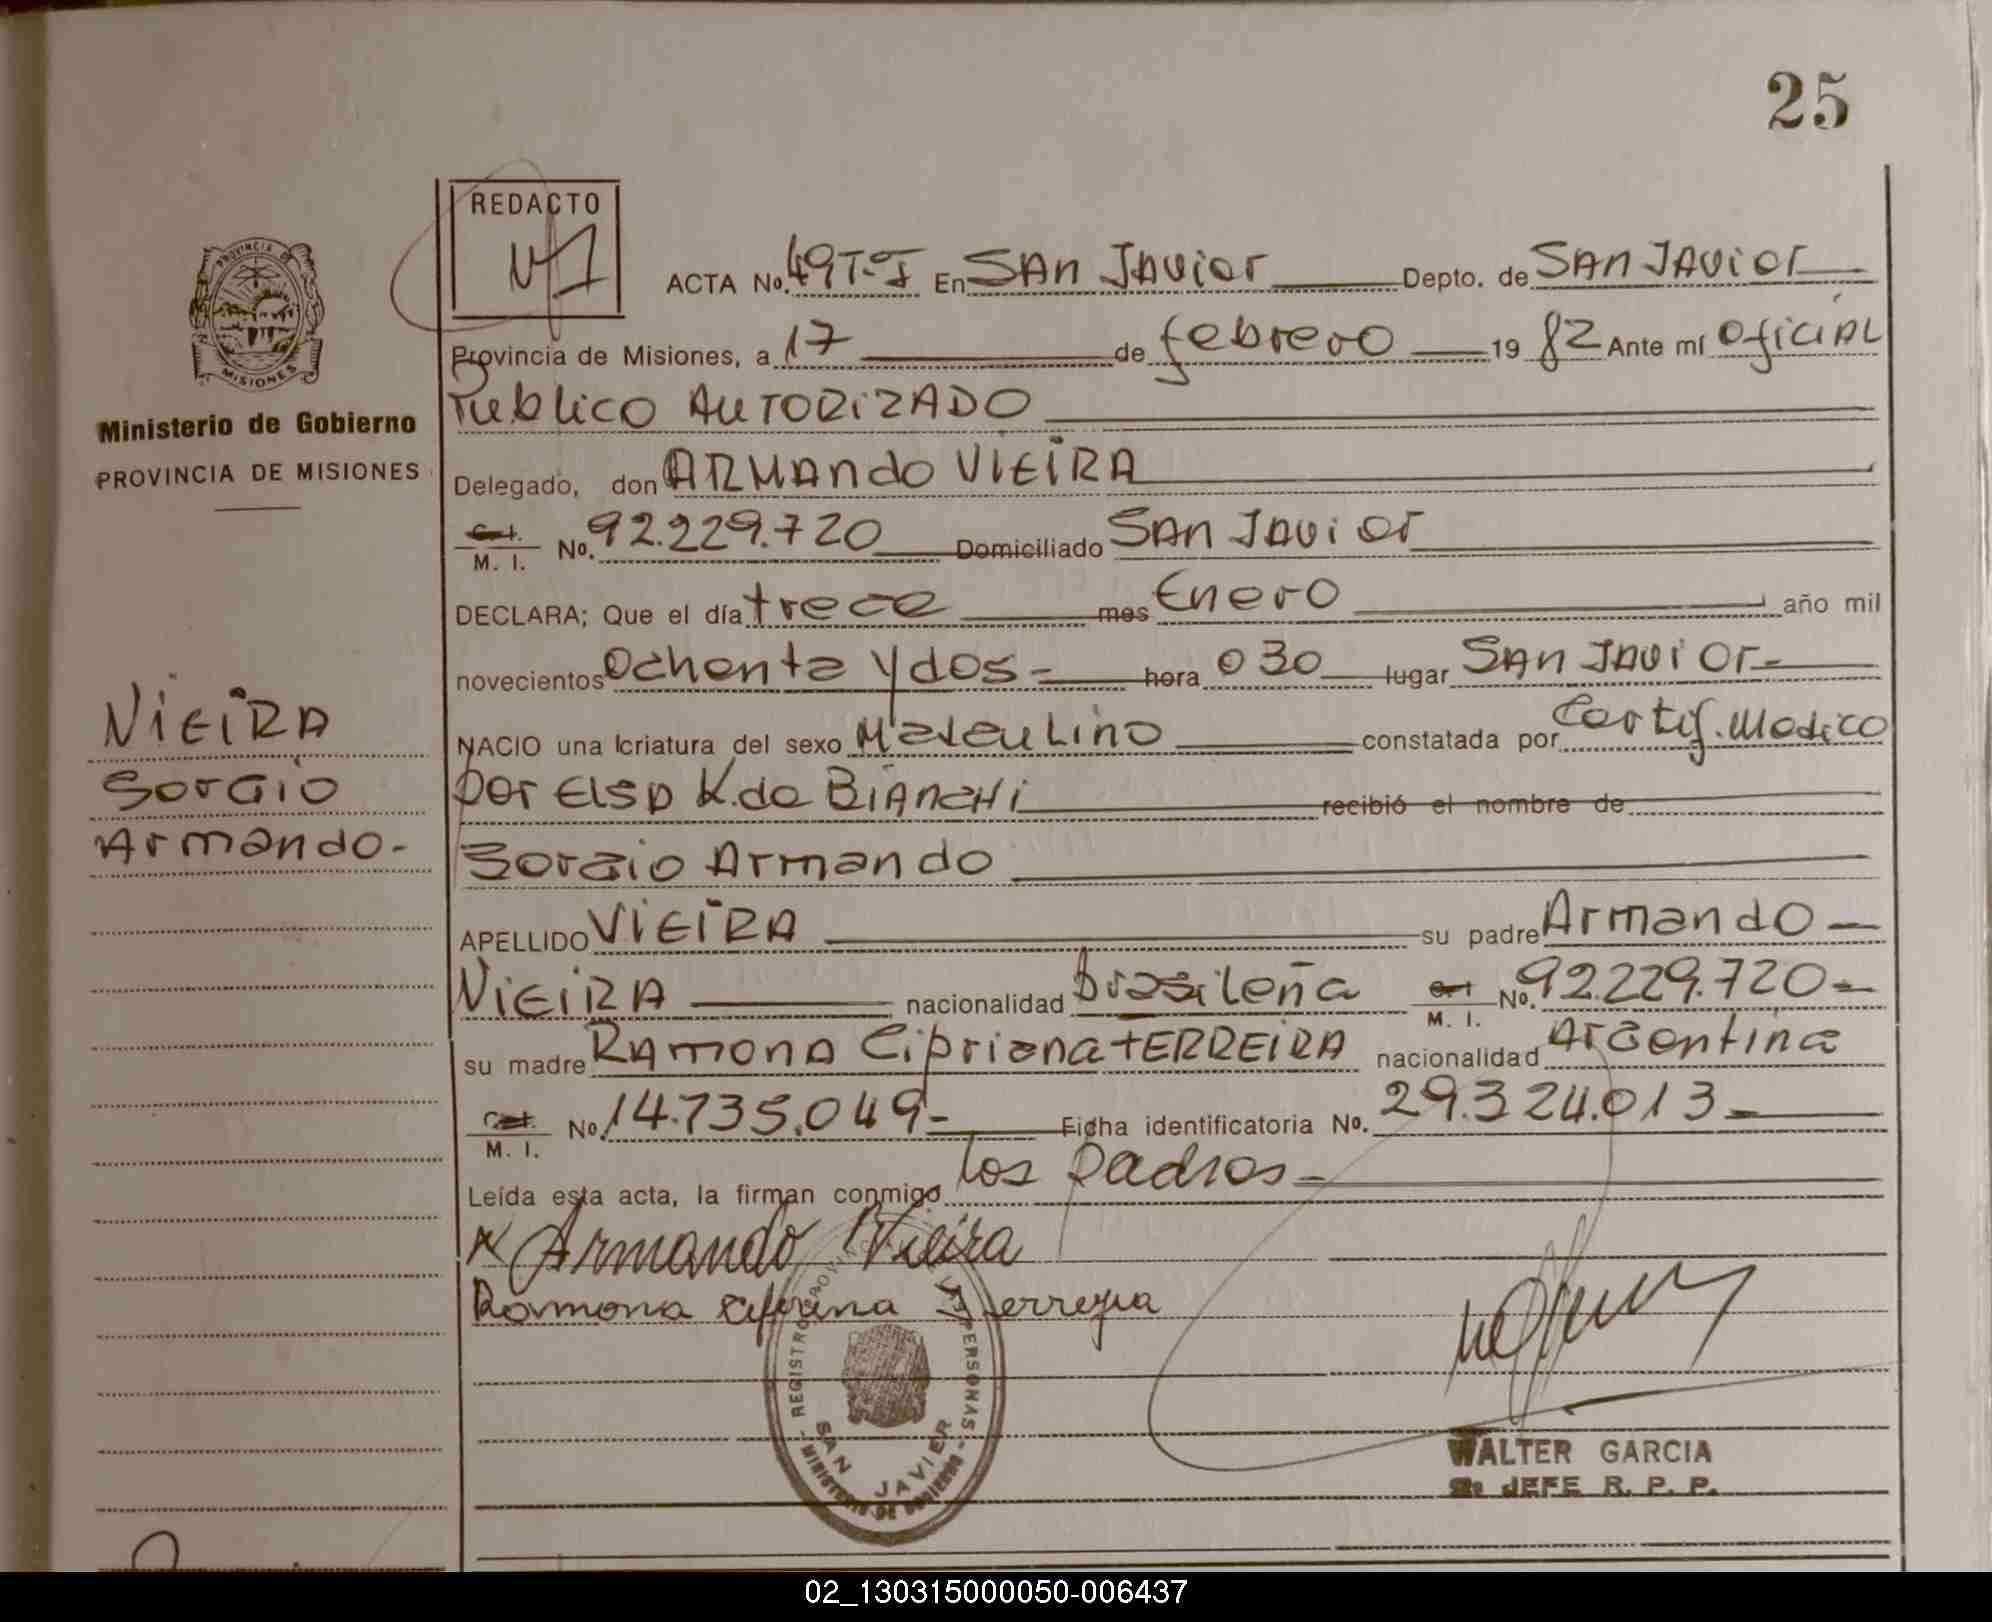 25
REDACTO
PROVINCIA DE
MISIONES
Ministerio de Gobierno
PROVINCIA DE MISIONES
ACTA No. 49T.I En SAn JAvier Depto. de SAn JAvier
Provincia de Misiones, a 17 de febrero 19 82 Ante mí OficiAL
Publico AuTORiZADO
Delegado, don ARMAndo ViEiRA
M. I. No. 92.229.720 Domiciliado SAn JAvier
DECLARA; Que el día trece mes Enero año mil
novecientos Ochenta y dos- hora 0 30 lugar SAn JAvier-
NACIO una criatura del sexo Masculino constatada por Certif. Medico
por Elsa K. de BiAncHi recibió el nombre de
Sergio Armando
APELLIDO ViEiRA su padre Armando -
ViEiRA nacionalidad brasileña M. I. No. 92.229.720-
su madre RAmonA Cipriana FERREiRA nacionalidad Argentina
M. I. No. 14.735.049- Ficha identificatoria No. 29.324.013-
Leída esta acta, la firman conmigo los padres-
x Armando Vieira
Ramona Cipriana Ferreyra
ViEiRA
Sergio
Armando-
REGISTRO PROVINCIAL PERSONAS
SAN JAVIER
MINISTERIO DE GOBIERNO
WALTER GARCIA
JEFE R. P. P.
02_130315000050-006437